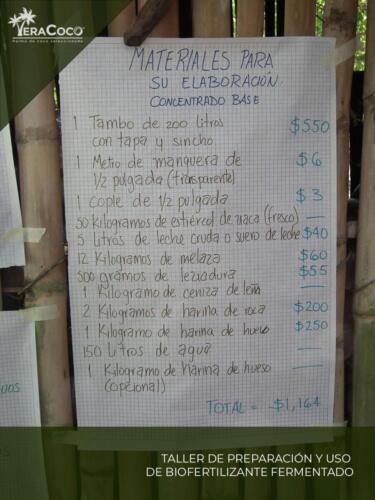 YERACOCO
Palma de coco seleccionada
MATERIALES PARA
SU ELABORACIÓN
CONCENTRADO BASE
1 Tambo de 200 litros $550
con tapa y sincho
1 Metro de manguera de $6
1/2 pulgada (transparente)
1 cople de 1/2 pulgada $3
50 kilogramos de estiércol de vaca (fresco) —
5 litros de leche cruda o suero de leche $40
12 Kilogramos de melaza $60
500 gramos de levadura $55
1 Kilogramo de ceniza de leña —
2 Kilogramos de harina de roca $200
1 Kilogramo de harina de hueso $250
150 litros de agua —
1 Kilogramo de harina de hueso —
(opcional)
TOTAL = $1,164
TALLER DE PREPARACIÓN Y USO
DE BIOFERTILIZANTE FERMENTADO